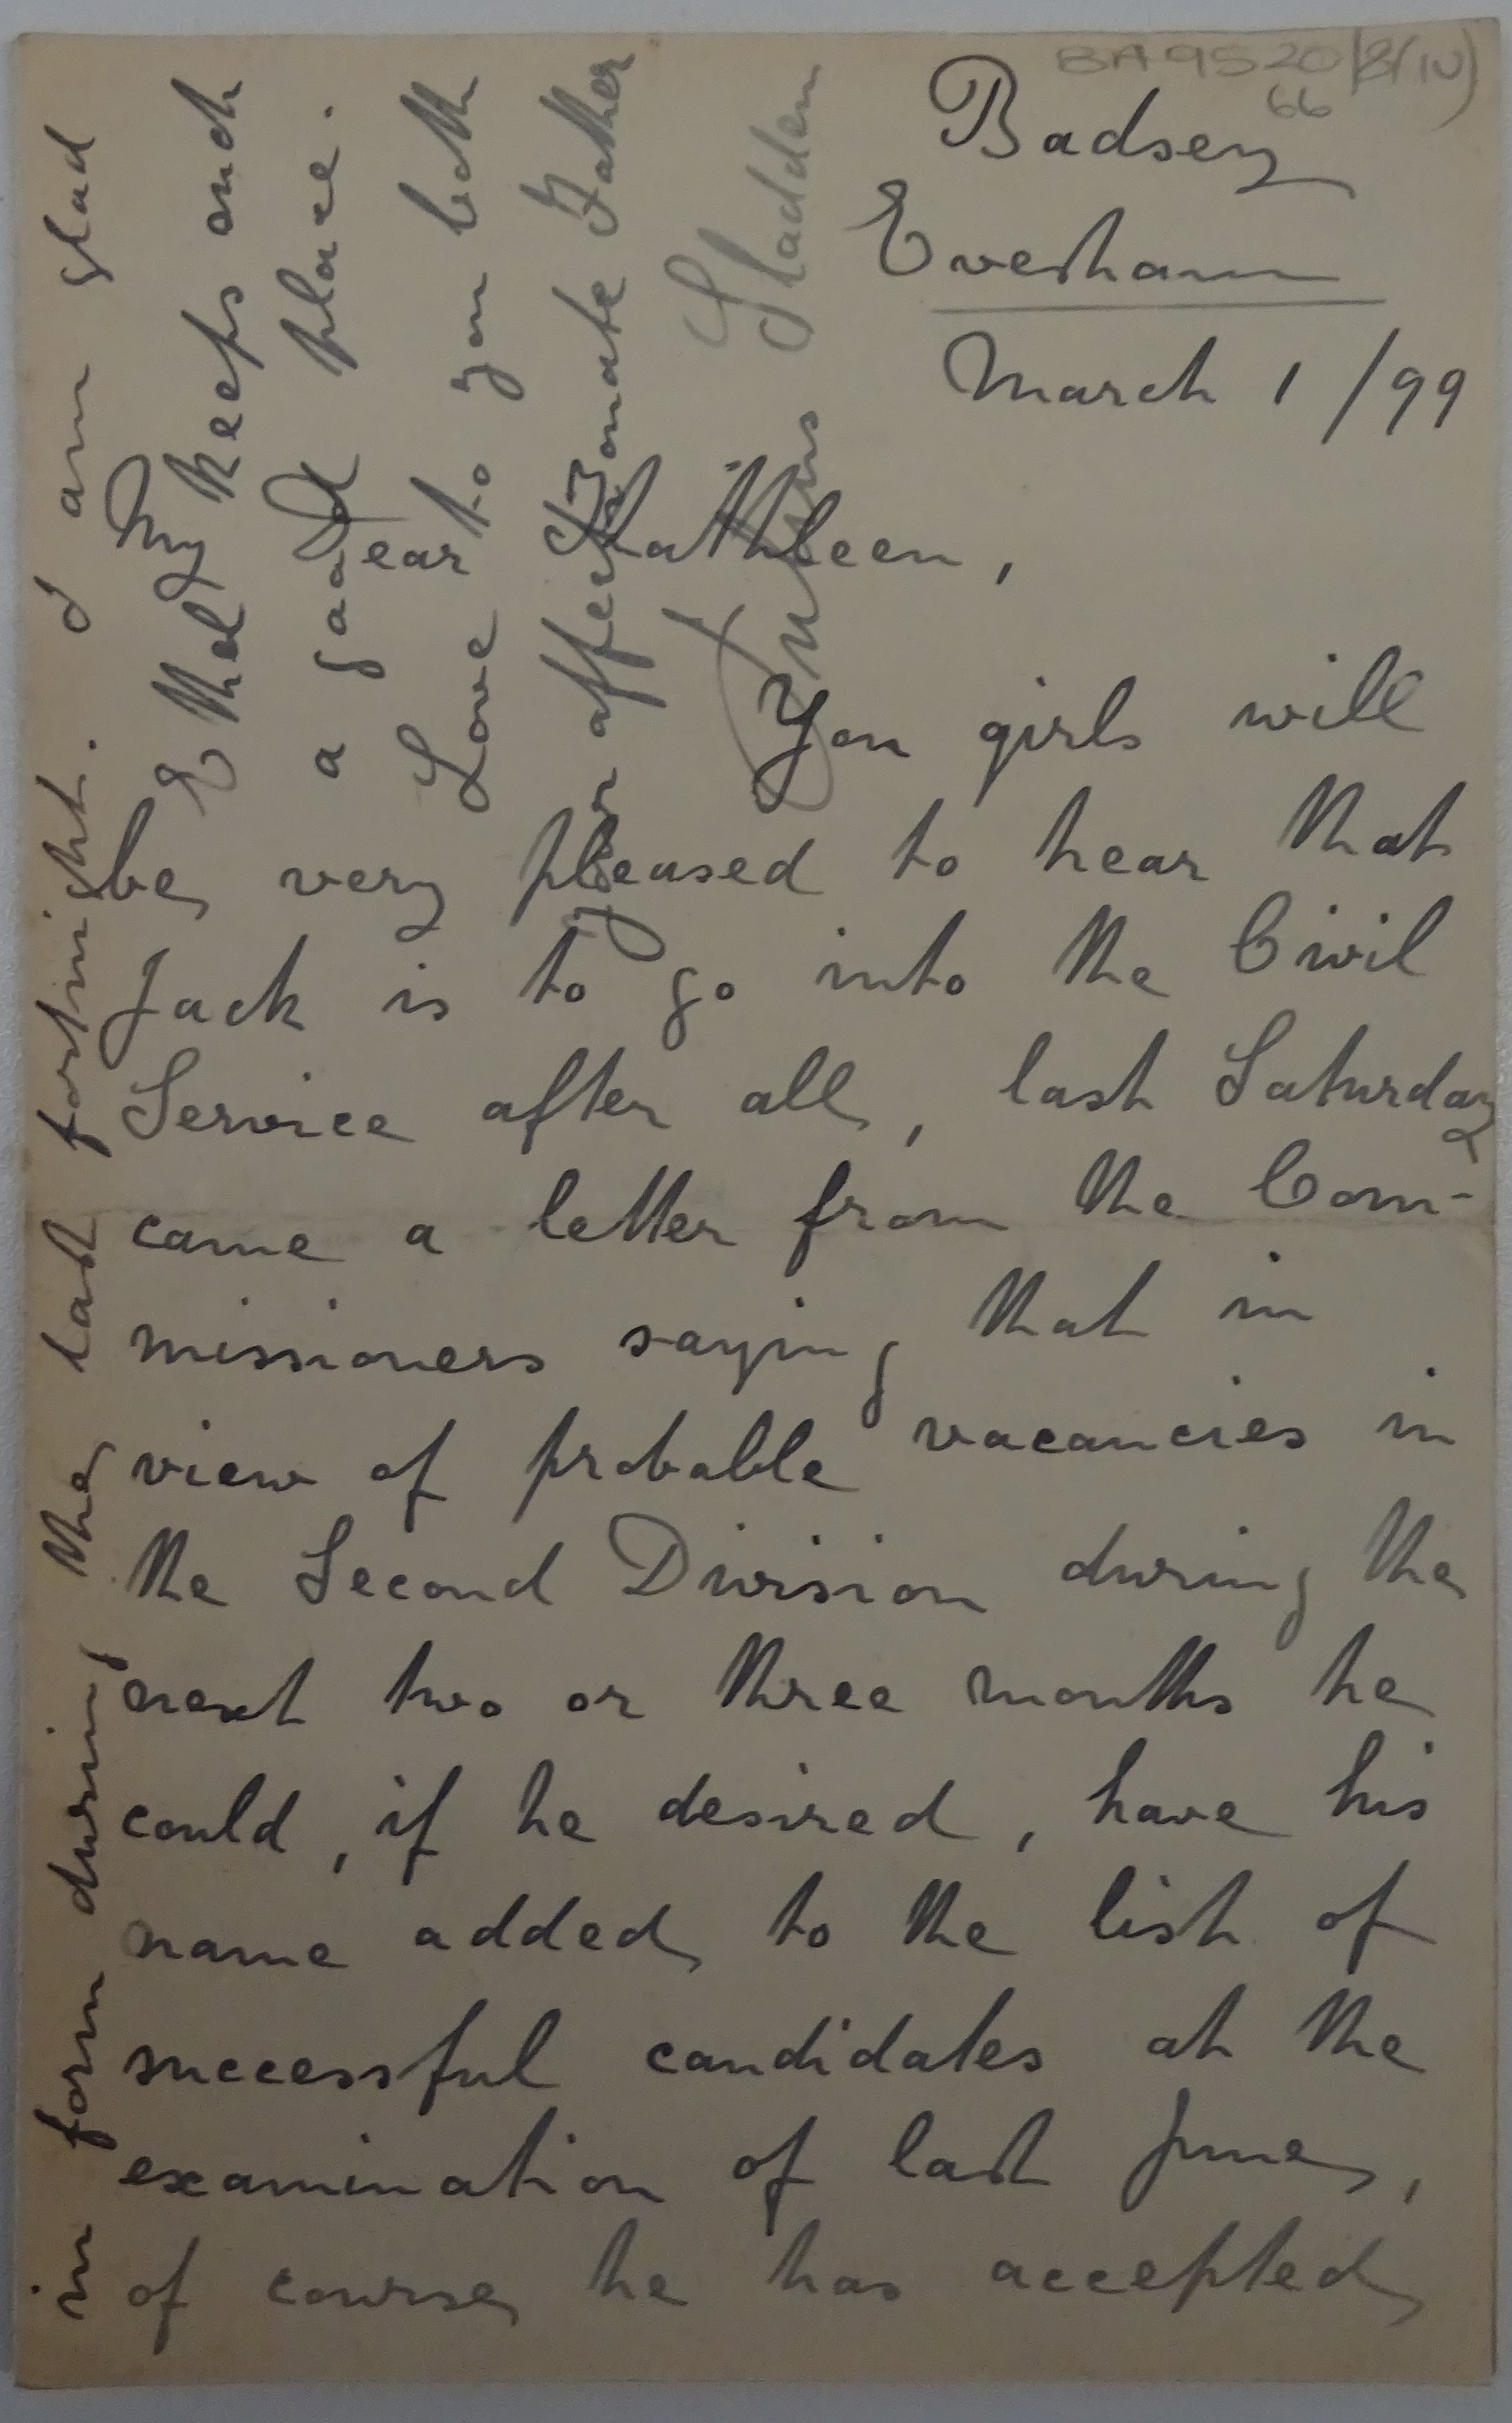 BA 9520/8(IV)
66
Badsey
Evesham
March 1/99
My Dear Kathleen,
You girls will
be very pleased to hear that
Jack is to go into the Civil
Service after all, last Saturday
came a letter from the Com-
missioners saying that in
view of probable vacancies in
the Second Division during the
next two or three months he
could, if he desired, have his
name added to the list of
successful candidates at the
examination of last June,
of course he has accepted
in form during the last fortnight. I am glad
Ethel keeps and
a good place.
Love to you both
yr affectionate Father
Julius Sladden